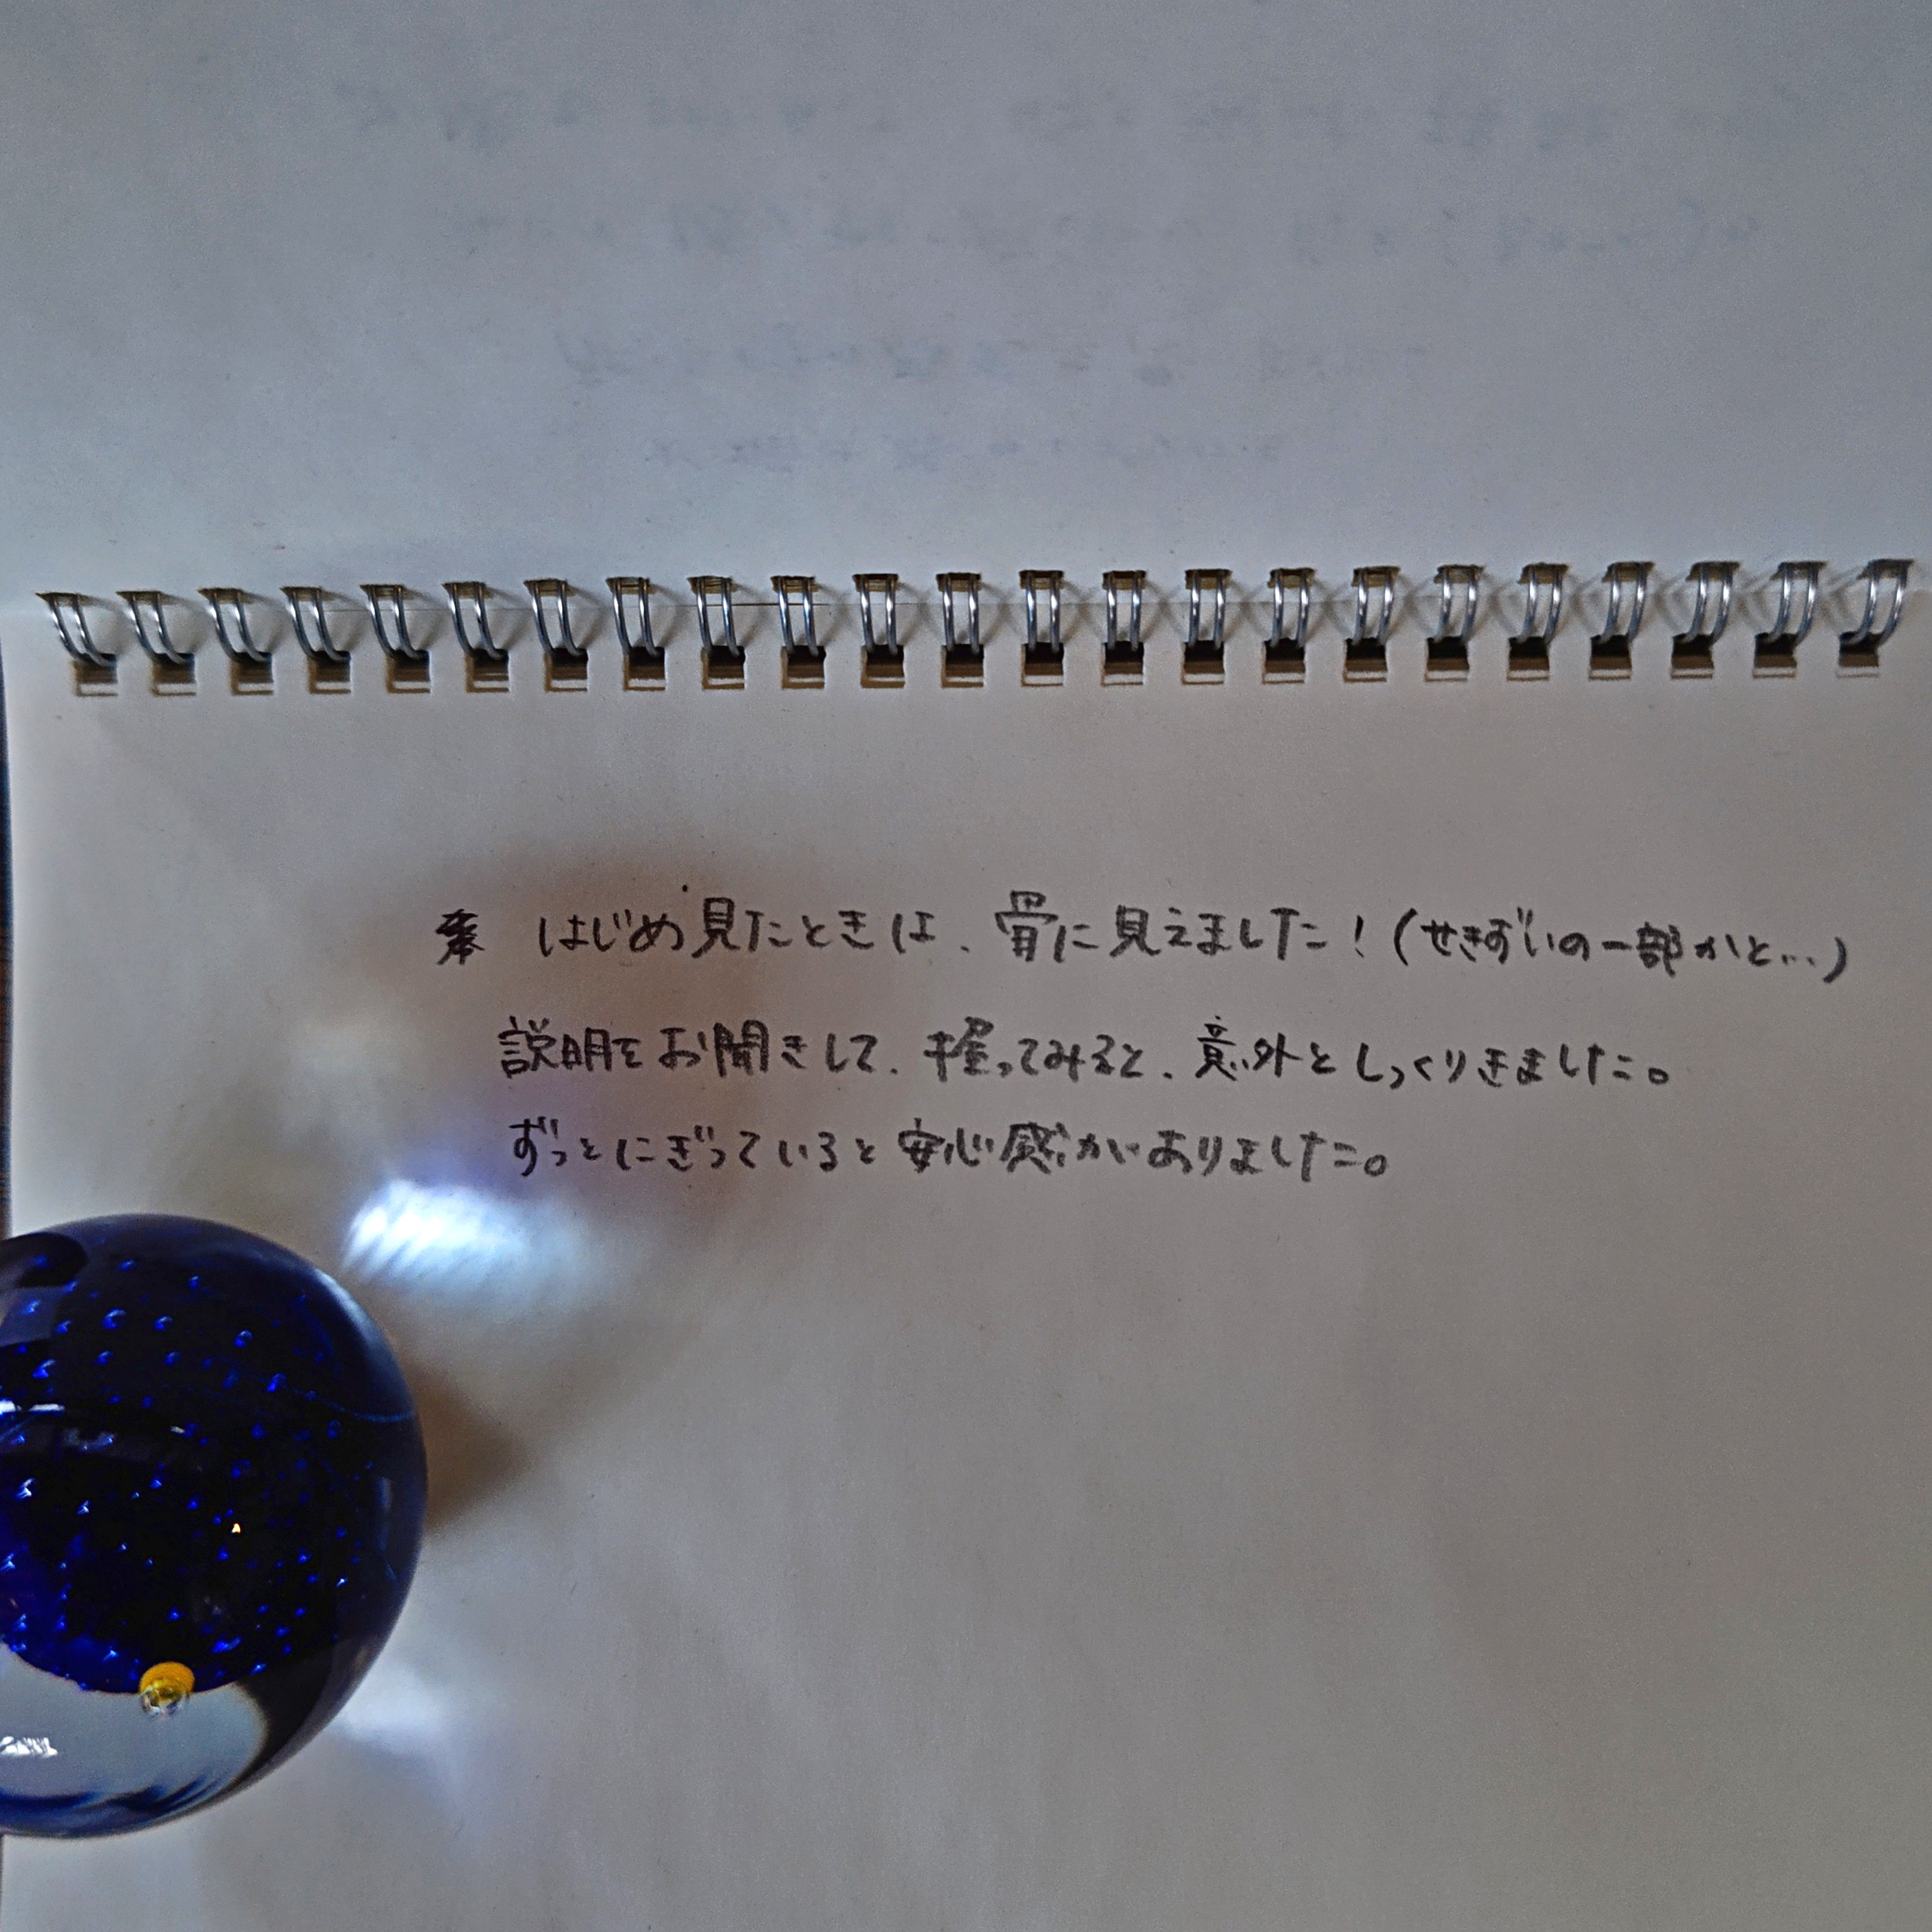 はじめ見たときは、骨に見えました！（せきずいの一部かと…）
説明をお聞きして、握ってみると、意外としっくりきました。
ずっとにぎっていると安心感がありました。